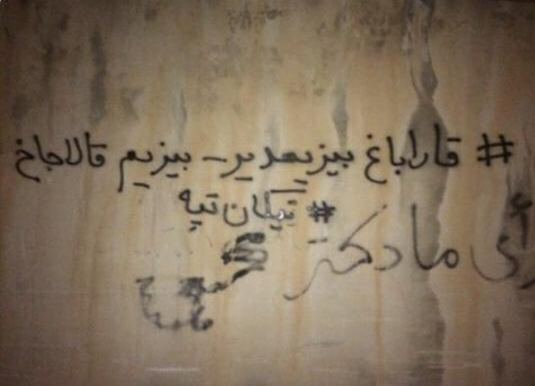 # قاراباغ بیزیمدیر - بیزیم قالاجاخ
# تیکان تپه
رأی ما دکتر